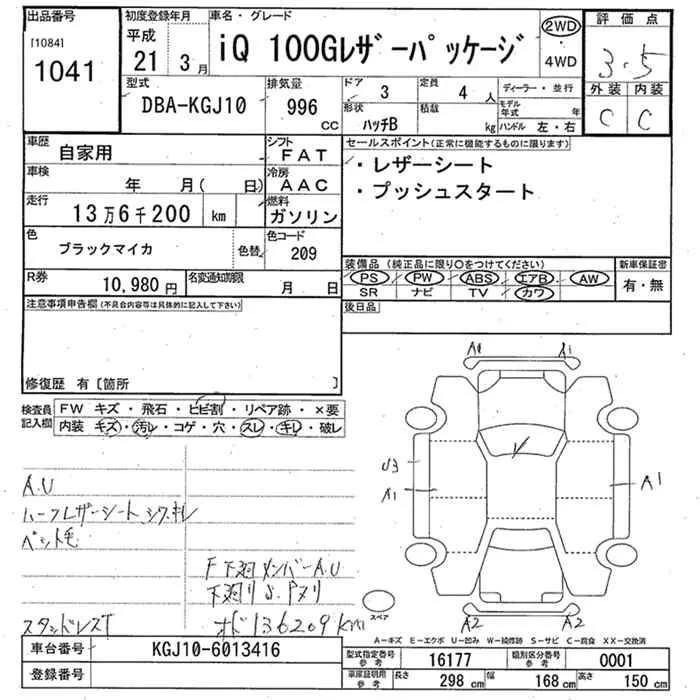 出品番号
[1084]
1041
初度登録年月
平成
21 3月
車名・グレード
iQ 100Gレザーパッケージ
2WD
・
4WD
評価点
3.5
外装 内装
C C
型式
DBA-KGJ10
排気量
996 cc
ドア
3
定員
4 人
形状
ハッチB
積載
kg
ディーラー・並行
モデル年式 年
ハンドル 左・右
車歴
自家用
シフト
FAT
車検
年 月( 日)
冷房
AAC
走行
13万6千200 km
燃料
ガソリン
色
ブラックマイカ
色替
色コード
209
R券
10,980円
名変通知期限
月 日
セールスポイント(正常に機能するものに限ります)
・レザーシート
・プッシュスタート
装備品(純正品に限り○をつけてください)
PS PW ABS エアB AW
SR ナビ TV カワ
新車保証書
有・無
後日品
注意事項申告欄(不具合内容等は具体的に記入して下さい)
修復歴 有〔箇所 〕
検査員記入欄
FW キズ・飛石・ヒビ割・リペア跡・×要
内装 キズ・汚レ・コゲ・穴・スレ・キレ・破レ
A.U
ハーフレザーシート、シワ、キレ
ペット毛
F下廻メンバーA.U
下廻りS.Pヌリ
スタッドレスT
オド136209km
A1 A1
U3
A1
A1
V
A2 A2
スペア
A-キズ E-エクボ U-凹み W-補修跡 S-サビ C-腐食 XX-交換済
車台番号
KGJ10-6013416
登録番号
型式指定番号参考
16177
類別区分番号参考
0001
車庫証明用参考
長さ 298 cm
幅 168 cm
高さ 150 cm